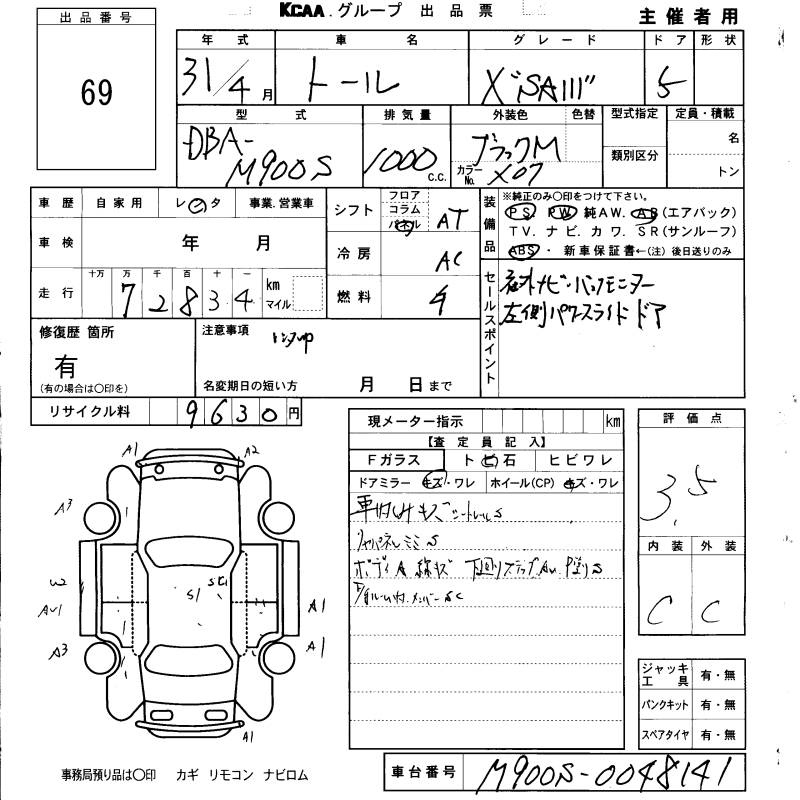 KCAA.グループ 出品票
主催者用
出品番号
69
年式 車名 グレード ドア 形状
31/4月 トール X"SAIII" 5
型式 排気量 外装色 色替 型式指定 定員・積載
DBA-M900S 1000 C.C. ブラックM 類別区分 名
カラーNo. X07 トン
車歴 自家用 レンタ 事業.営業車
車検 年 月
走行 十万 万 千 百 十 一 km マイル
7 2 8 3 4
シフト フロア コラム パネル AT
冷房 AC
燃料
装備品
※純正のみ〇印をつけて下さい。
PS. PW. 純AW. AB(エアバック)
TV. ナビ. カワ. SR(サンルーフ)
ABS・ 新車保証書←(注) 後日送りのみ
セールスポイント
社外ナビ・バックモニター
左側パワースライドドア
修復歴 箇所
有
(有の場合は〇印を)
注意事項
レンタup
名変期日の短い方 月 日まで
リサイクル料 9 6 3 0 円
現メーター指示 km
【査定員記入】
Fガラス ト ビ 石 ヒビワレ
ドアミラー キズ・ワレ ホイール(CP) キズ・ワレ
車内しみキズ シートレールS
ボディA線キズ
評価点
3.5
内装 外装
C C
A1 A2
A3
W2
AW1
A3
S1
A1
A1
A1
ジャッキ 工具 有・無
パンクキット 有・無
スペアタイヤ 有・無
事務局預り品は〇印 カギ リモコン ナビロム
車台番号 M900S-0048141